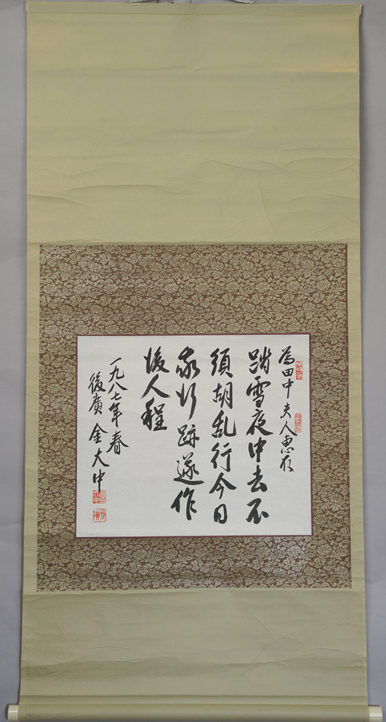 為田中夫人惠存
踏雪夜中去不
須胡乱行今日
我行跡遂作
後人程
一九八七年春
後廣 金大中